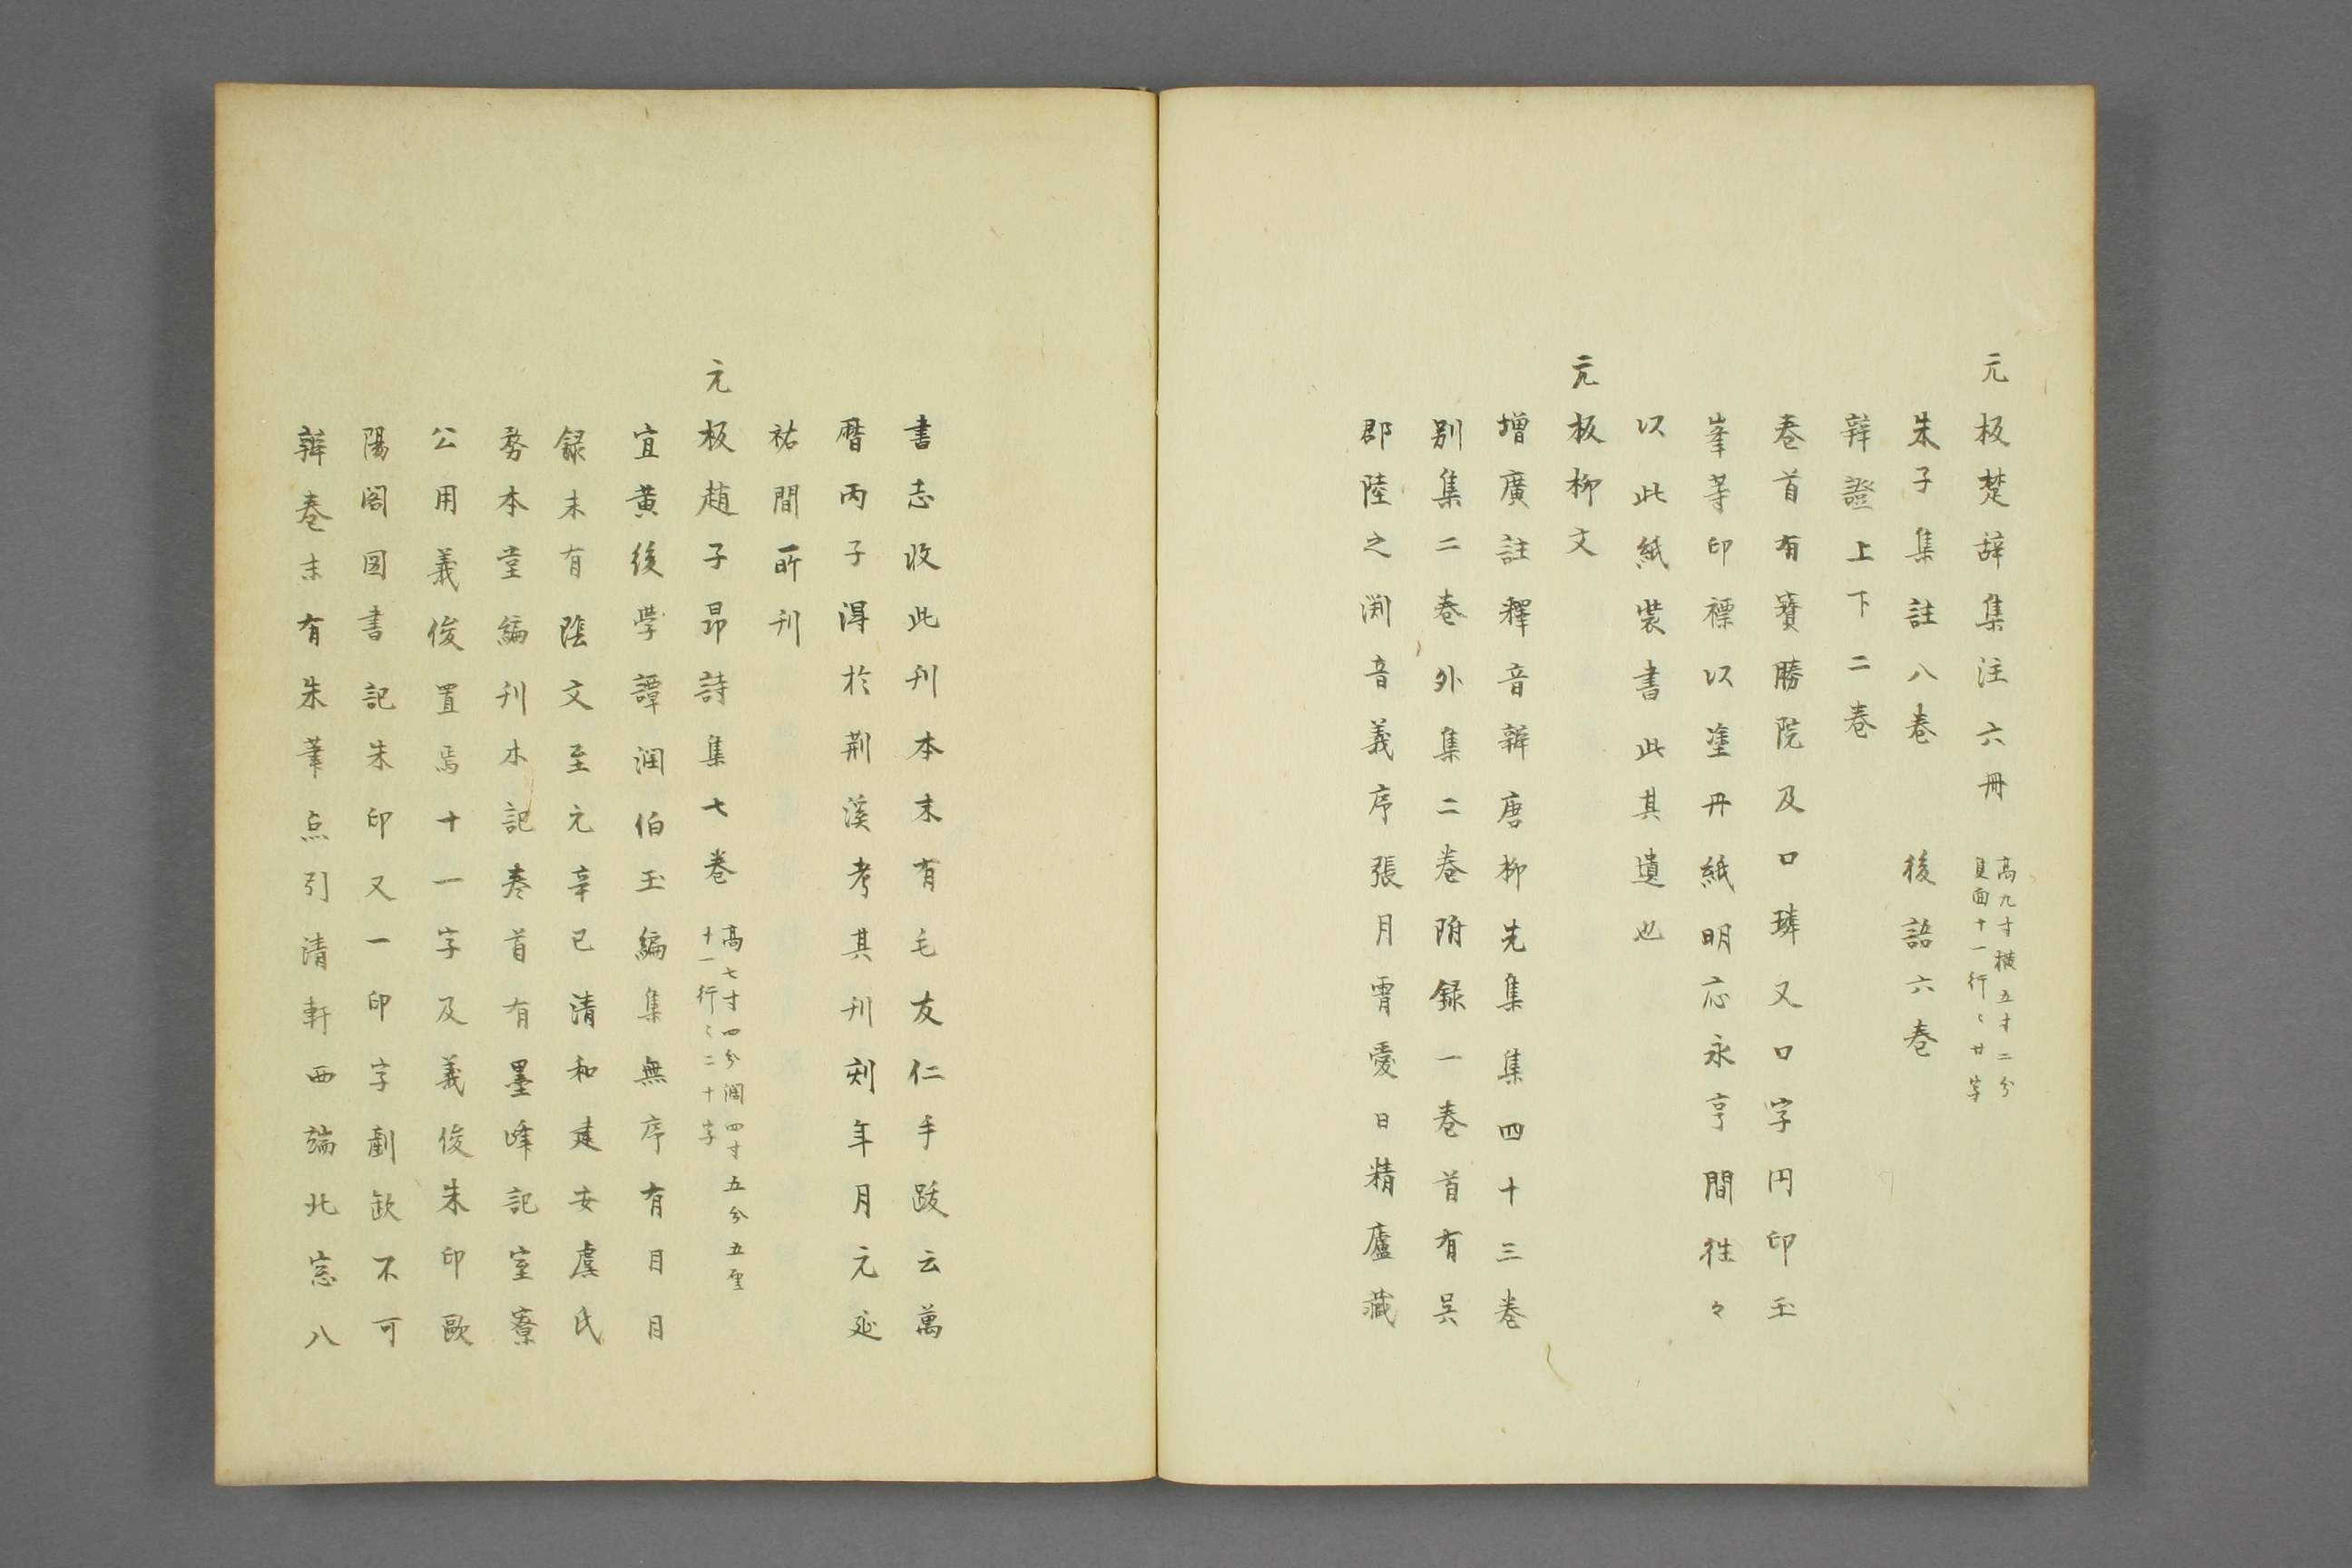 元板楚辞集注六冊 高九寸横五寸二分
每面十一行〻廿字
朱子集註八巻 後語六巻
辯證上下二巻
巻首有寳勝院及口璘又口字円印玉
峯等印褾以塗丹紙明応永亨間徃々
以此紙装書此其遺也
元板柳文
増廣註釋音辯唐柳先集集四十三巻
別集二巻外集二巻附録一巻首有呉
郡陸之渕音義序張月霄愛日精廬藏
書志收此刊本末有毛友仁手跋云萬
暦丙子得於荆溪考其刊刻年月元延
祐間所刊
元板趙子昂詩集七巻 高七寸四分濶四寸五分五厘
十一行〻二十字
宜黄後学譚润伯玉編集無序有目目
録末有陰文至元辛巳清和建安虞氏
務本堂編刊木記巻首有墨峰記室寮
公用義俊置焉十一字及義俊朱印歐
陽閣図書記朱印又一印字劃缺不可
辨巻末有朱筆点引清軒西端北窓八